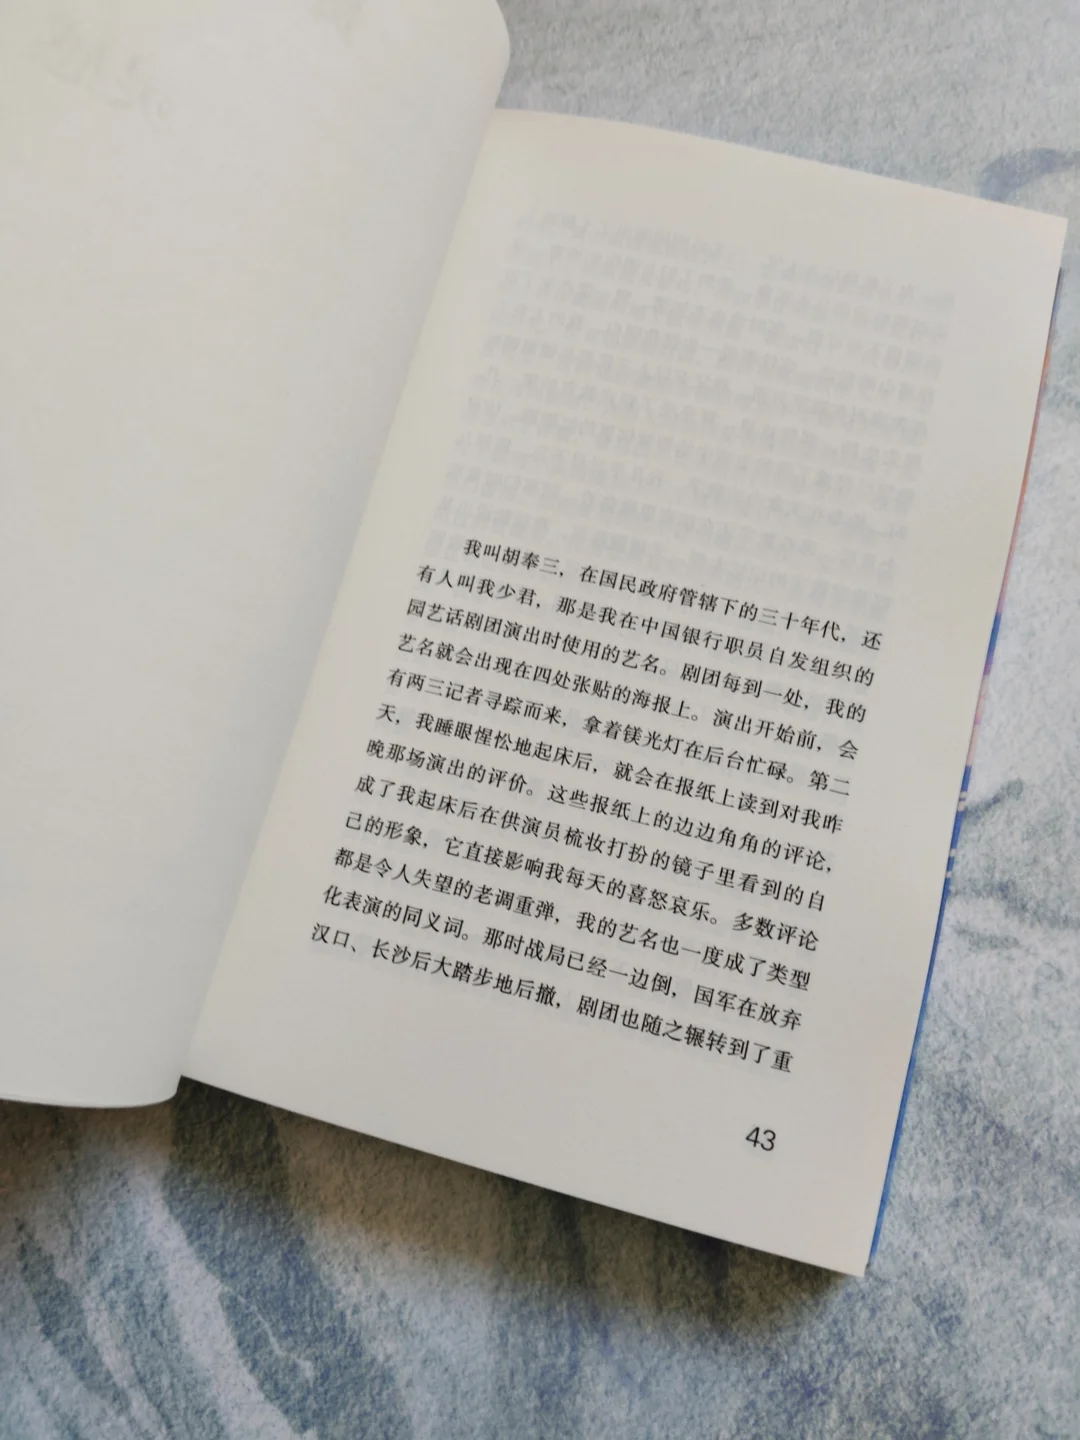 我叫胡奉三，在国民政府管辖下的三十年代，还
有人叫我少君，那是我在中国银行职员自发组织的
园艺话剧团演出时使用的艺名。剧团每到一处，我的
艺名就会出现在四处张贴的海报上。演出开始前，会
有两三记者寻踪而来，拿着镁光灯在后台忙碌。第二
天，我睡眼惺忪地起床后，就会在报纸上读到对我昨
晚那场演出的评价。这些报纸上的边边角角的评论，
成了我起床后在供演员梳妆打扮的镜子里看到的自
己的形象，它直接影响我每天的喜怒哀乐。多数评论
都是令人失望的老调重弹，我的艺名也一度成了类型
化表演的同义词。那时战局已经一边倒，国军在放弃
汉口、长沙后大踏步地后撤，剧团也随之辗转到了重
43